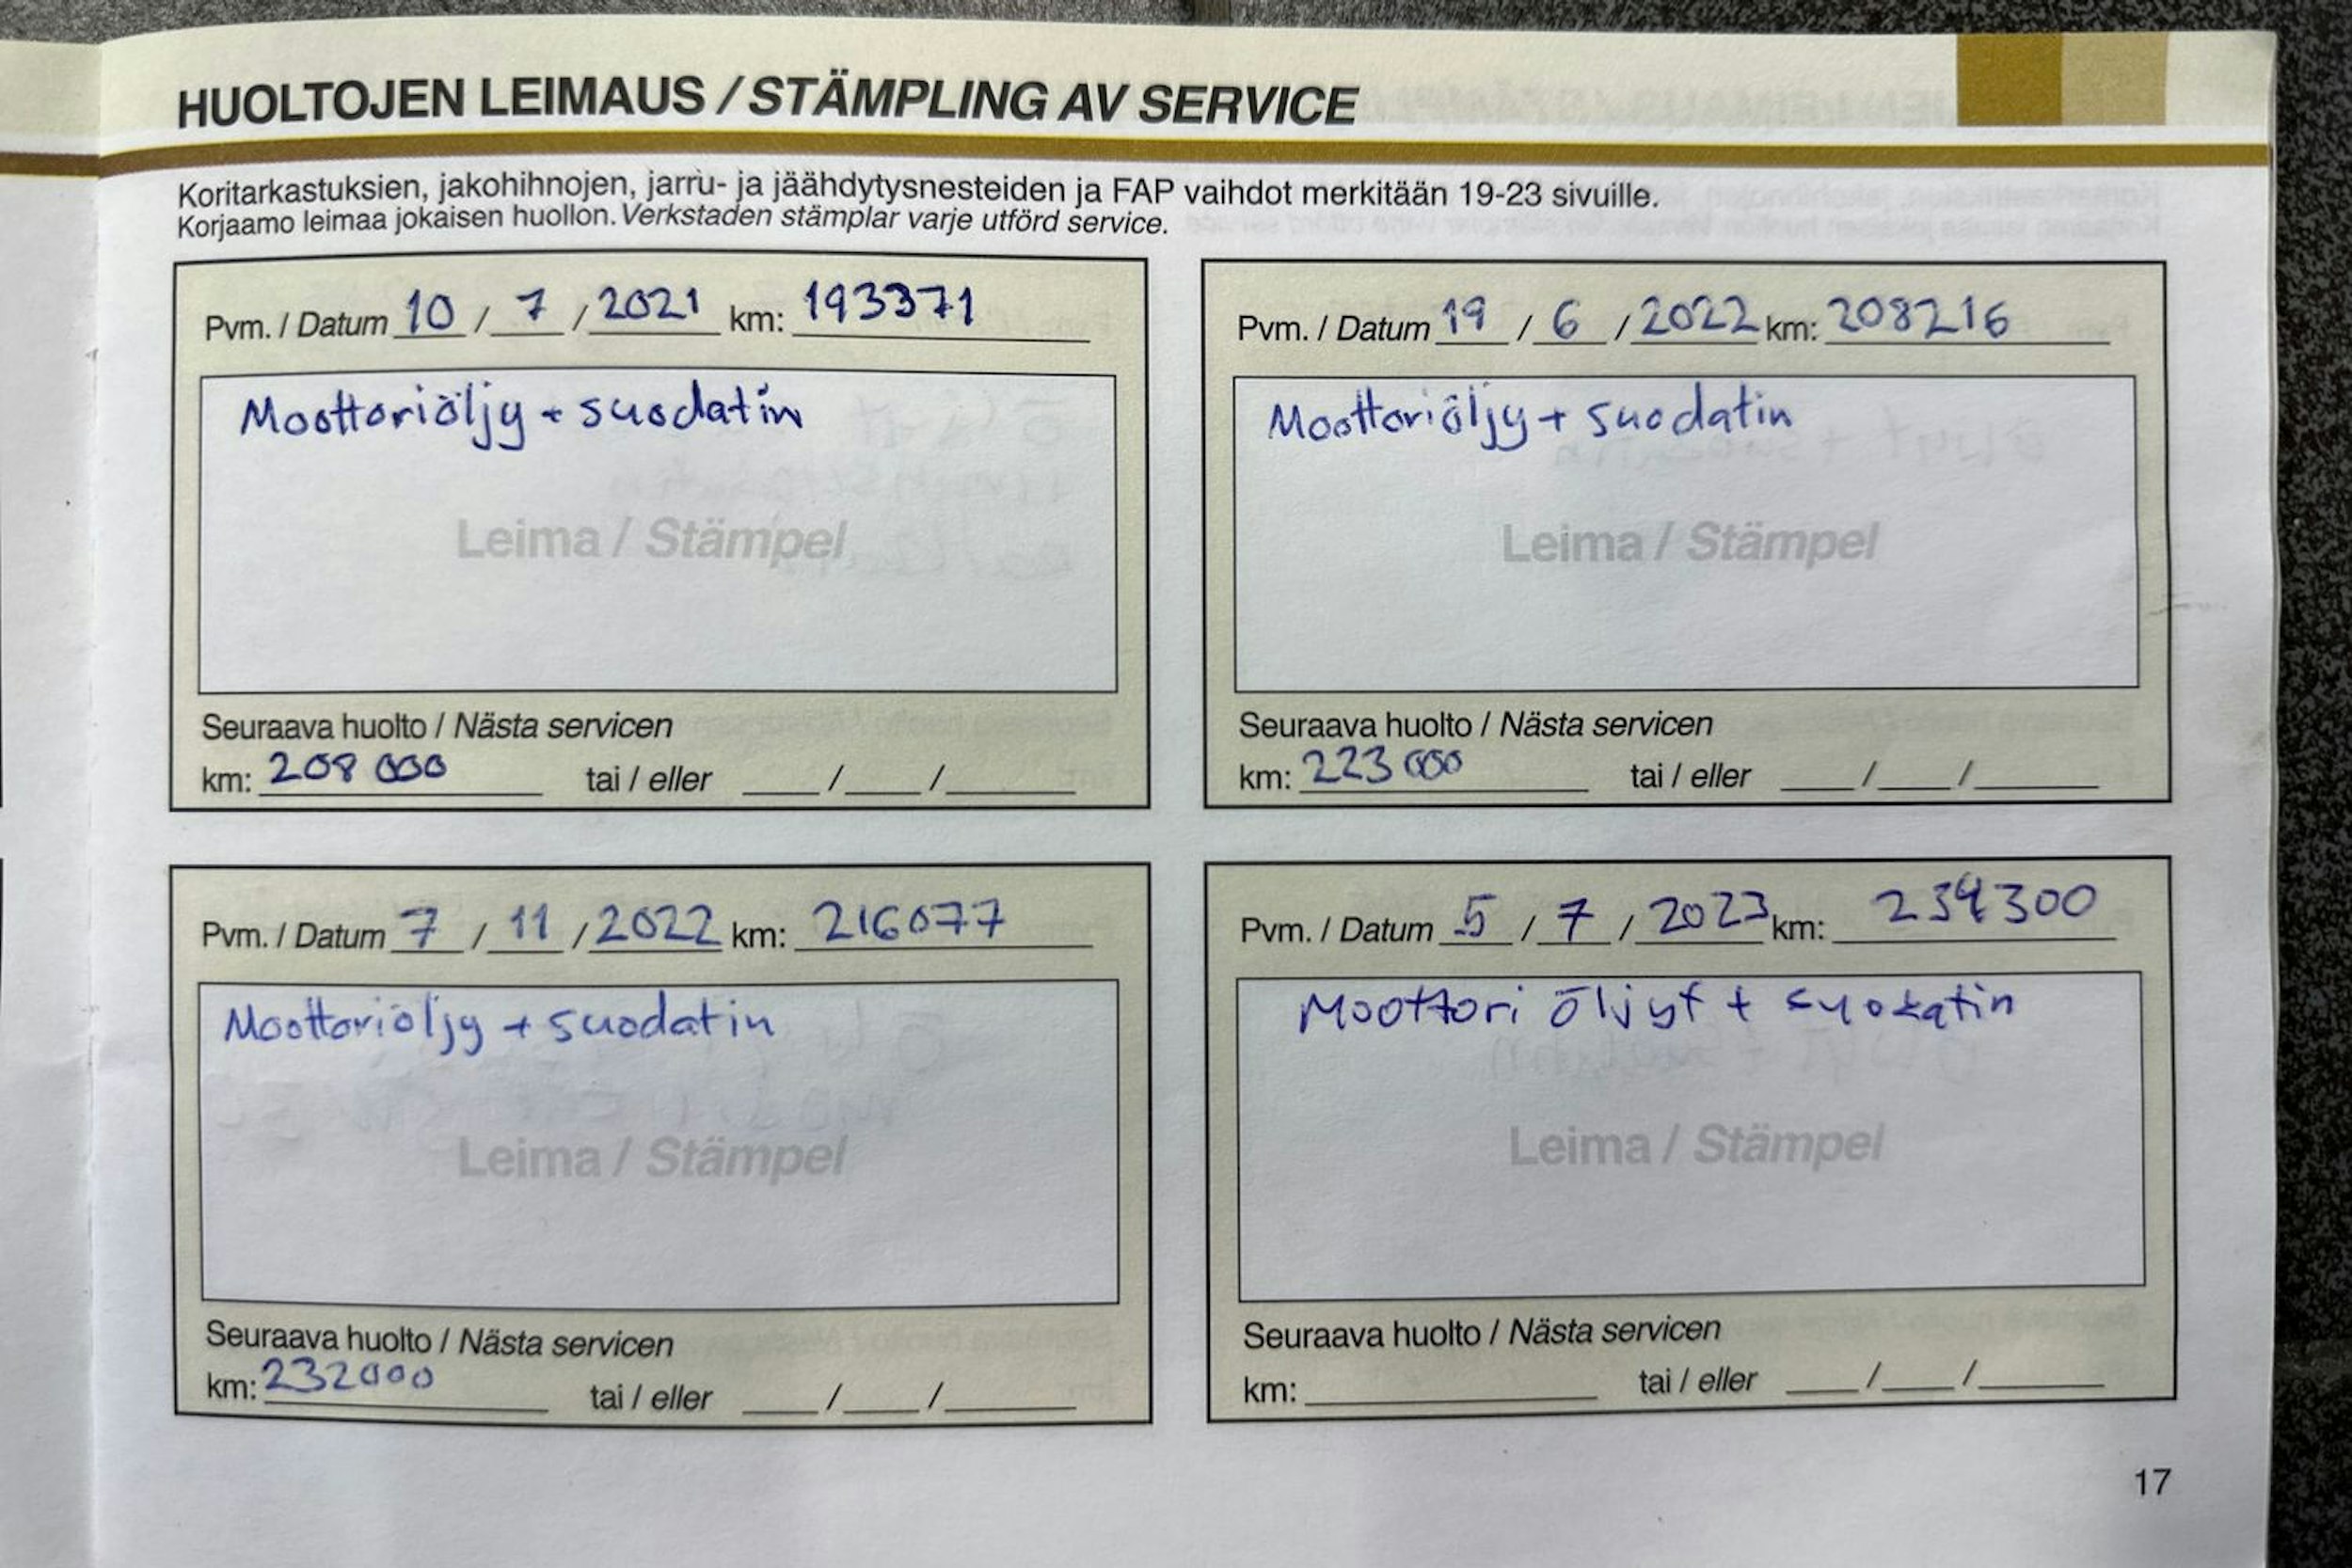 HUOLTOJEN LEIMAUS / STÄMPLING AV SERVICE
Koritarkastuksien, jakohihnojen, jarru- ja jäähdytysnesteiden ja FAP vaihdot merkitään 19-23 sivuille.
Korjaamo leimaa jokaisen huollon. Verkstaden stämplar varje utförd service.
Pvm. / Datum 10 / 7 / 2021 km: 193371
Moottoriöljy + suodatin
Leima / Stämpel
Seuraava huolto / Nästa servicen
km: 208 000 tai / eller ____ /____ /______
Pvm. / Datum 19 / 6 / 2022 km: 208216
Moottoriöljy + suodatin
Leima / Stämpel
Seuraava huolto / Nästa servicen
km: 223 000 tai / eller ____ /____ /______
Pvm. / Datum 7 / 11 / 2022 km: 216077
Moottoriöljy + suodatin
Leima / Stämpel
Seuraava huolto / Nästa servicen
km: 232000 tai / eller ____ /____ /______
Pvm. / Datum 5 / 7 / 2023 km: 234300
Moottori öljyt + suodatin
Leima / Stämpel
Seuraava huolto / Nästa servicen
km: ________ tai / eller ____ /____ /______
17